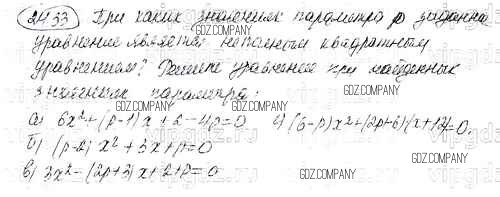 24.33 При каких значениях параметра р заданное
уравнение является неполным квадратным
уравнением? Решите уравнение при найденных
значениях параметра:
а) 6x²+(p-1)x+2-4p=0 г) (6-p)x²+(2p+6)(x+12)=0.
б) (p-2)x²+3x+p=0
в) 3x²-(2p+3)x+2+p=0
GDZ.COMPANY